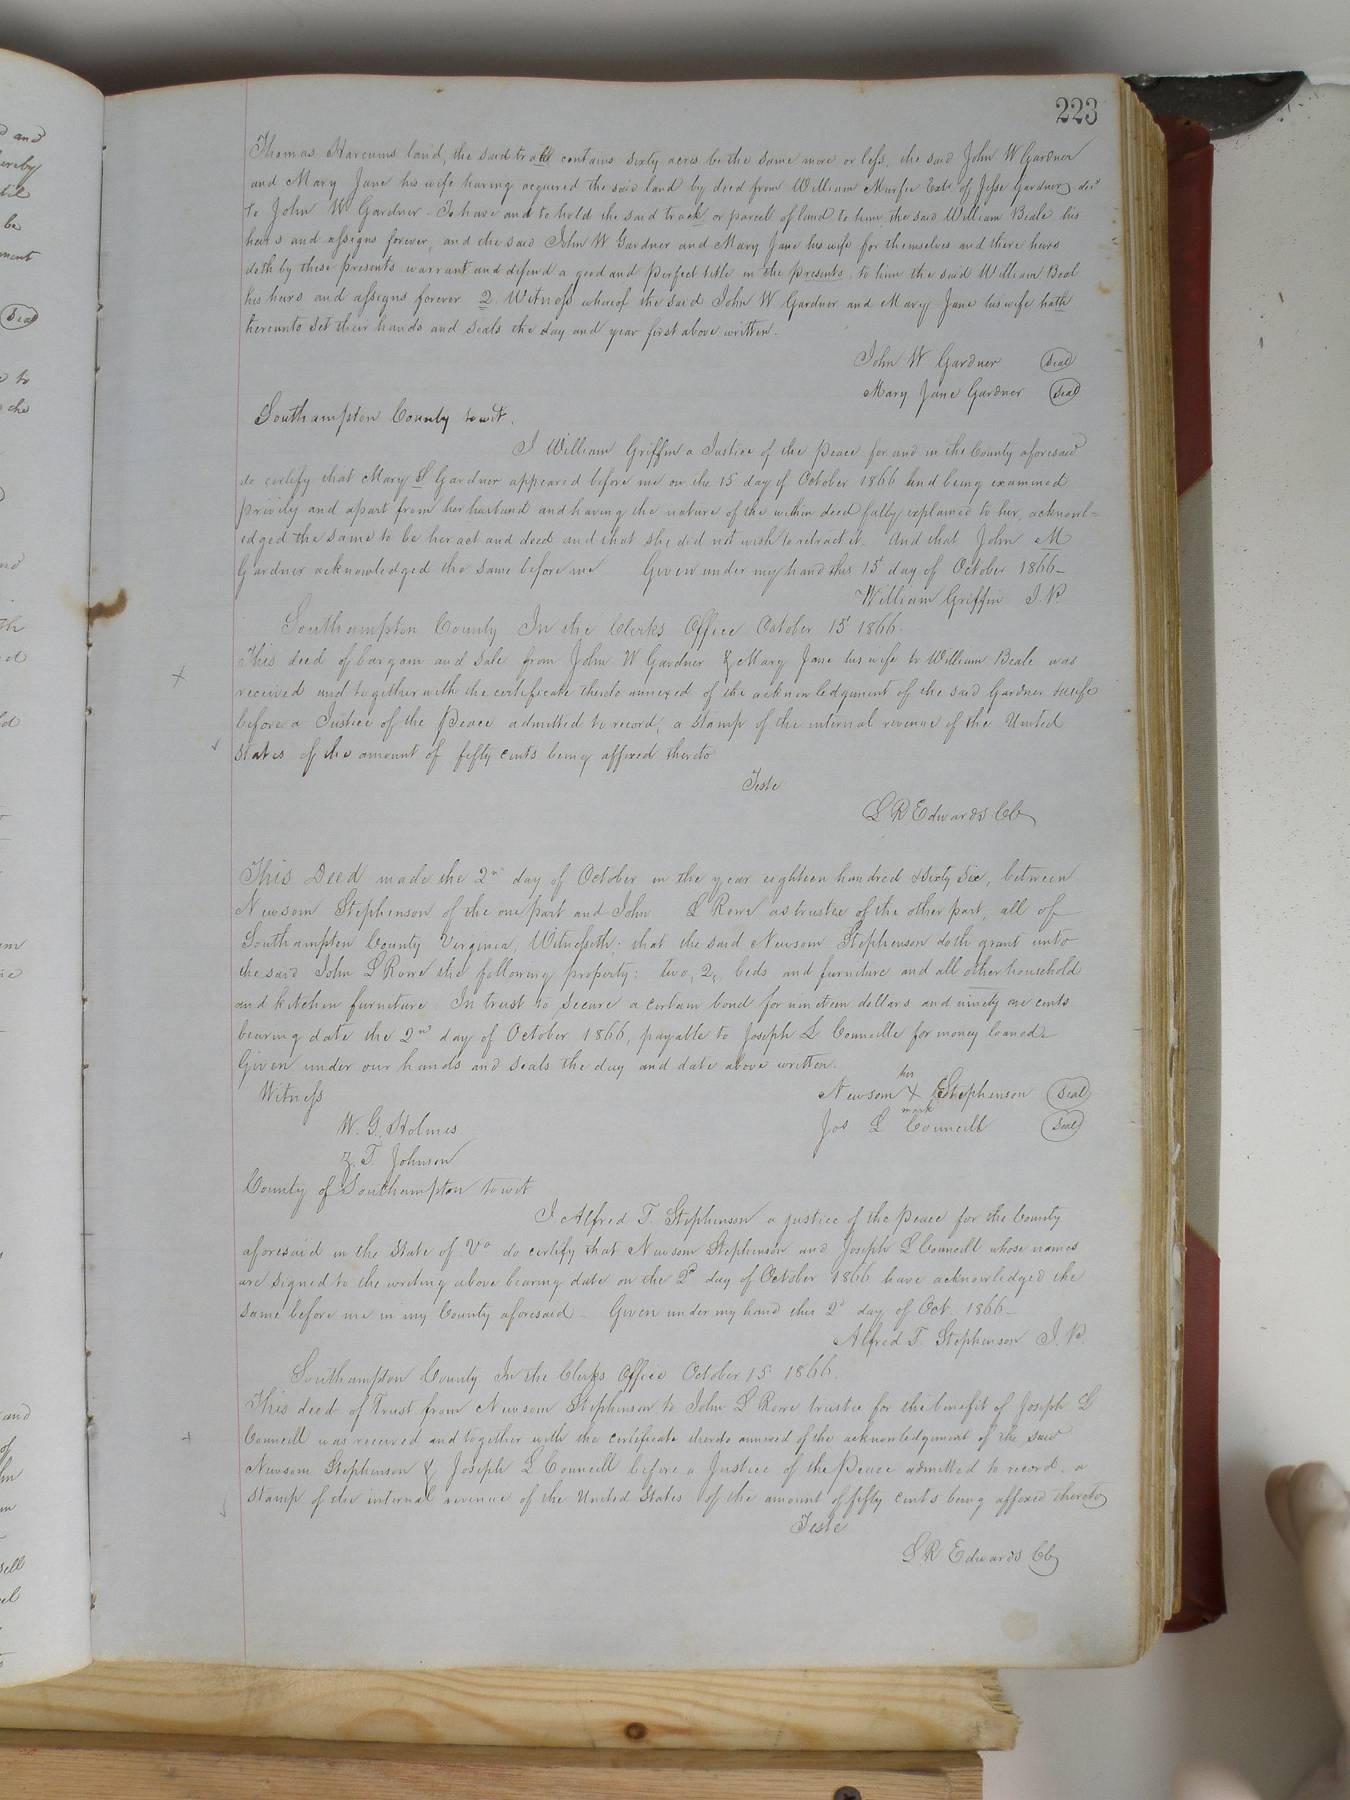 223
Thomas Harcums land, the said tract contains sixty acres be the same more or less, the said John W Gardner
and Mary Jane his wife having acquired the said land by deed from William Murfee Extr of Jesse Gardner decd
to John W Gardner - To have and to hold the said track or parcel of land to him the said William Beale his
heirs and assigns forever, and the said John W Gardner and Mary Jane his wife for themselves and there heirs
doth by these presents warrant and defend a good and perfect title in the presents, to him the said William Beal
his heirs and assigns forever 2 Witness whereof the said John W Gardner and Mary Jane his wife hath
hereunto set their hands and seals the day and year first above written.
John W Gardner Seal
Mary Jane Gardner Seal
Southampton County towit.
I William Griffin a Justice of the Peace for and in the County aforesaid
do certify that Mary S Gardner appeared before me on the 15 day of October 1866 and being examined
privily and apart from her husband and having the nature of the within deed fully explained to her, acknowl=
edged the same to be her act and deed and that she did not wish to retract it. And that John M
Gardner acknowledged the same before me Given under my hand this 15 day of October 1866-
William Griffin J.P.
Southampton County In the Clerks Office October 15' 1866.
This deed of bargain and sale from John W Gardner & Mary Jane his wife to William Beale was
received and together with the certificate thereto annexed of the acknowledgement of the said Gardner & wife
before a Justice of the Peace admitted to record, a stamp of the internal revenue of the United
States of the amount of fifty cents being affixed thereto
Teste
L R Edwards Clk
This Deed made the 2nd day of October in the year eighteen hundred & Sixty Six, between
Newsom Stephenson of the one part and John L Rowe as trustee of the other part, all of
Southampton County Virginia, Witnesseth: that the said Newsom Stephenson doth grant unto
the said John L Rowe the following property: two, 2, beds and furniture and all other household
and kitchen furniture In trust to secure a certain bond for nineteen dollars and ninety one cents
bearing date the 2nd day of October 1866, payable to Joseph L Councille for money loaned.
Given under our hands and seals the day and date above written.
Witness
his
Newsom X Stephenson Seal
mark
W. G. Holmes
Jos L Councill Seal
Z. T. Johnson
County of Southampton towit
I Alfred T. Stephenson a justice of the peace for the County
aforesaid in the State of Va do certify that Newsom Stephenson and Joseph L Councill whose names
are signed to the writing above bearing date on the 2d day of October 1866 have acknowledged the
same before me in my County aforesaid - Given under my hand this 2d day of Oct. 1866-
Alfred T. Stephenson J.P.
Southampton County In the Clerks Office October 15 1866.
This deed of Trust from Newsom Stephenson to John L Rowe trustee for the benefit of Joseph L
Councill was received and together with the certificate thereto annexed of the acknowledgement of the said
Newsom Stephenson & Joseph L Councill before a Justice of the Peace admitted to record, a
Stamp of the internal revenue of the United States of the amount of fifty cents being affixed thereto
Teste
L R Edwards Clk